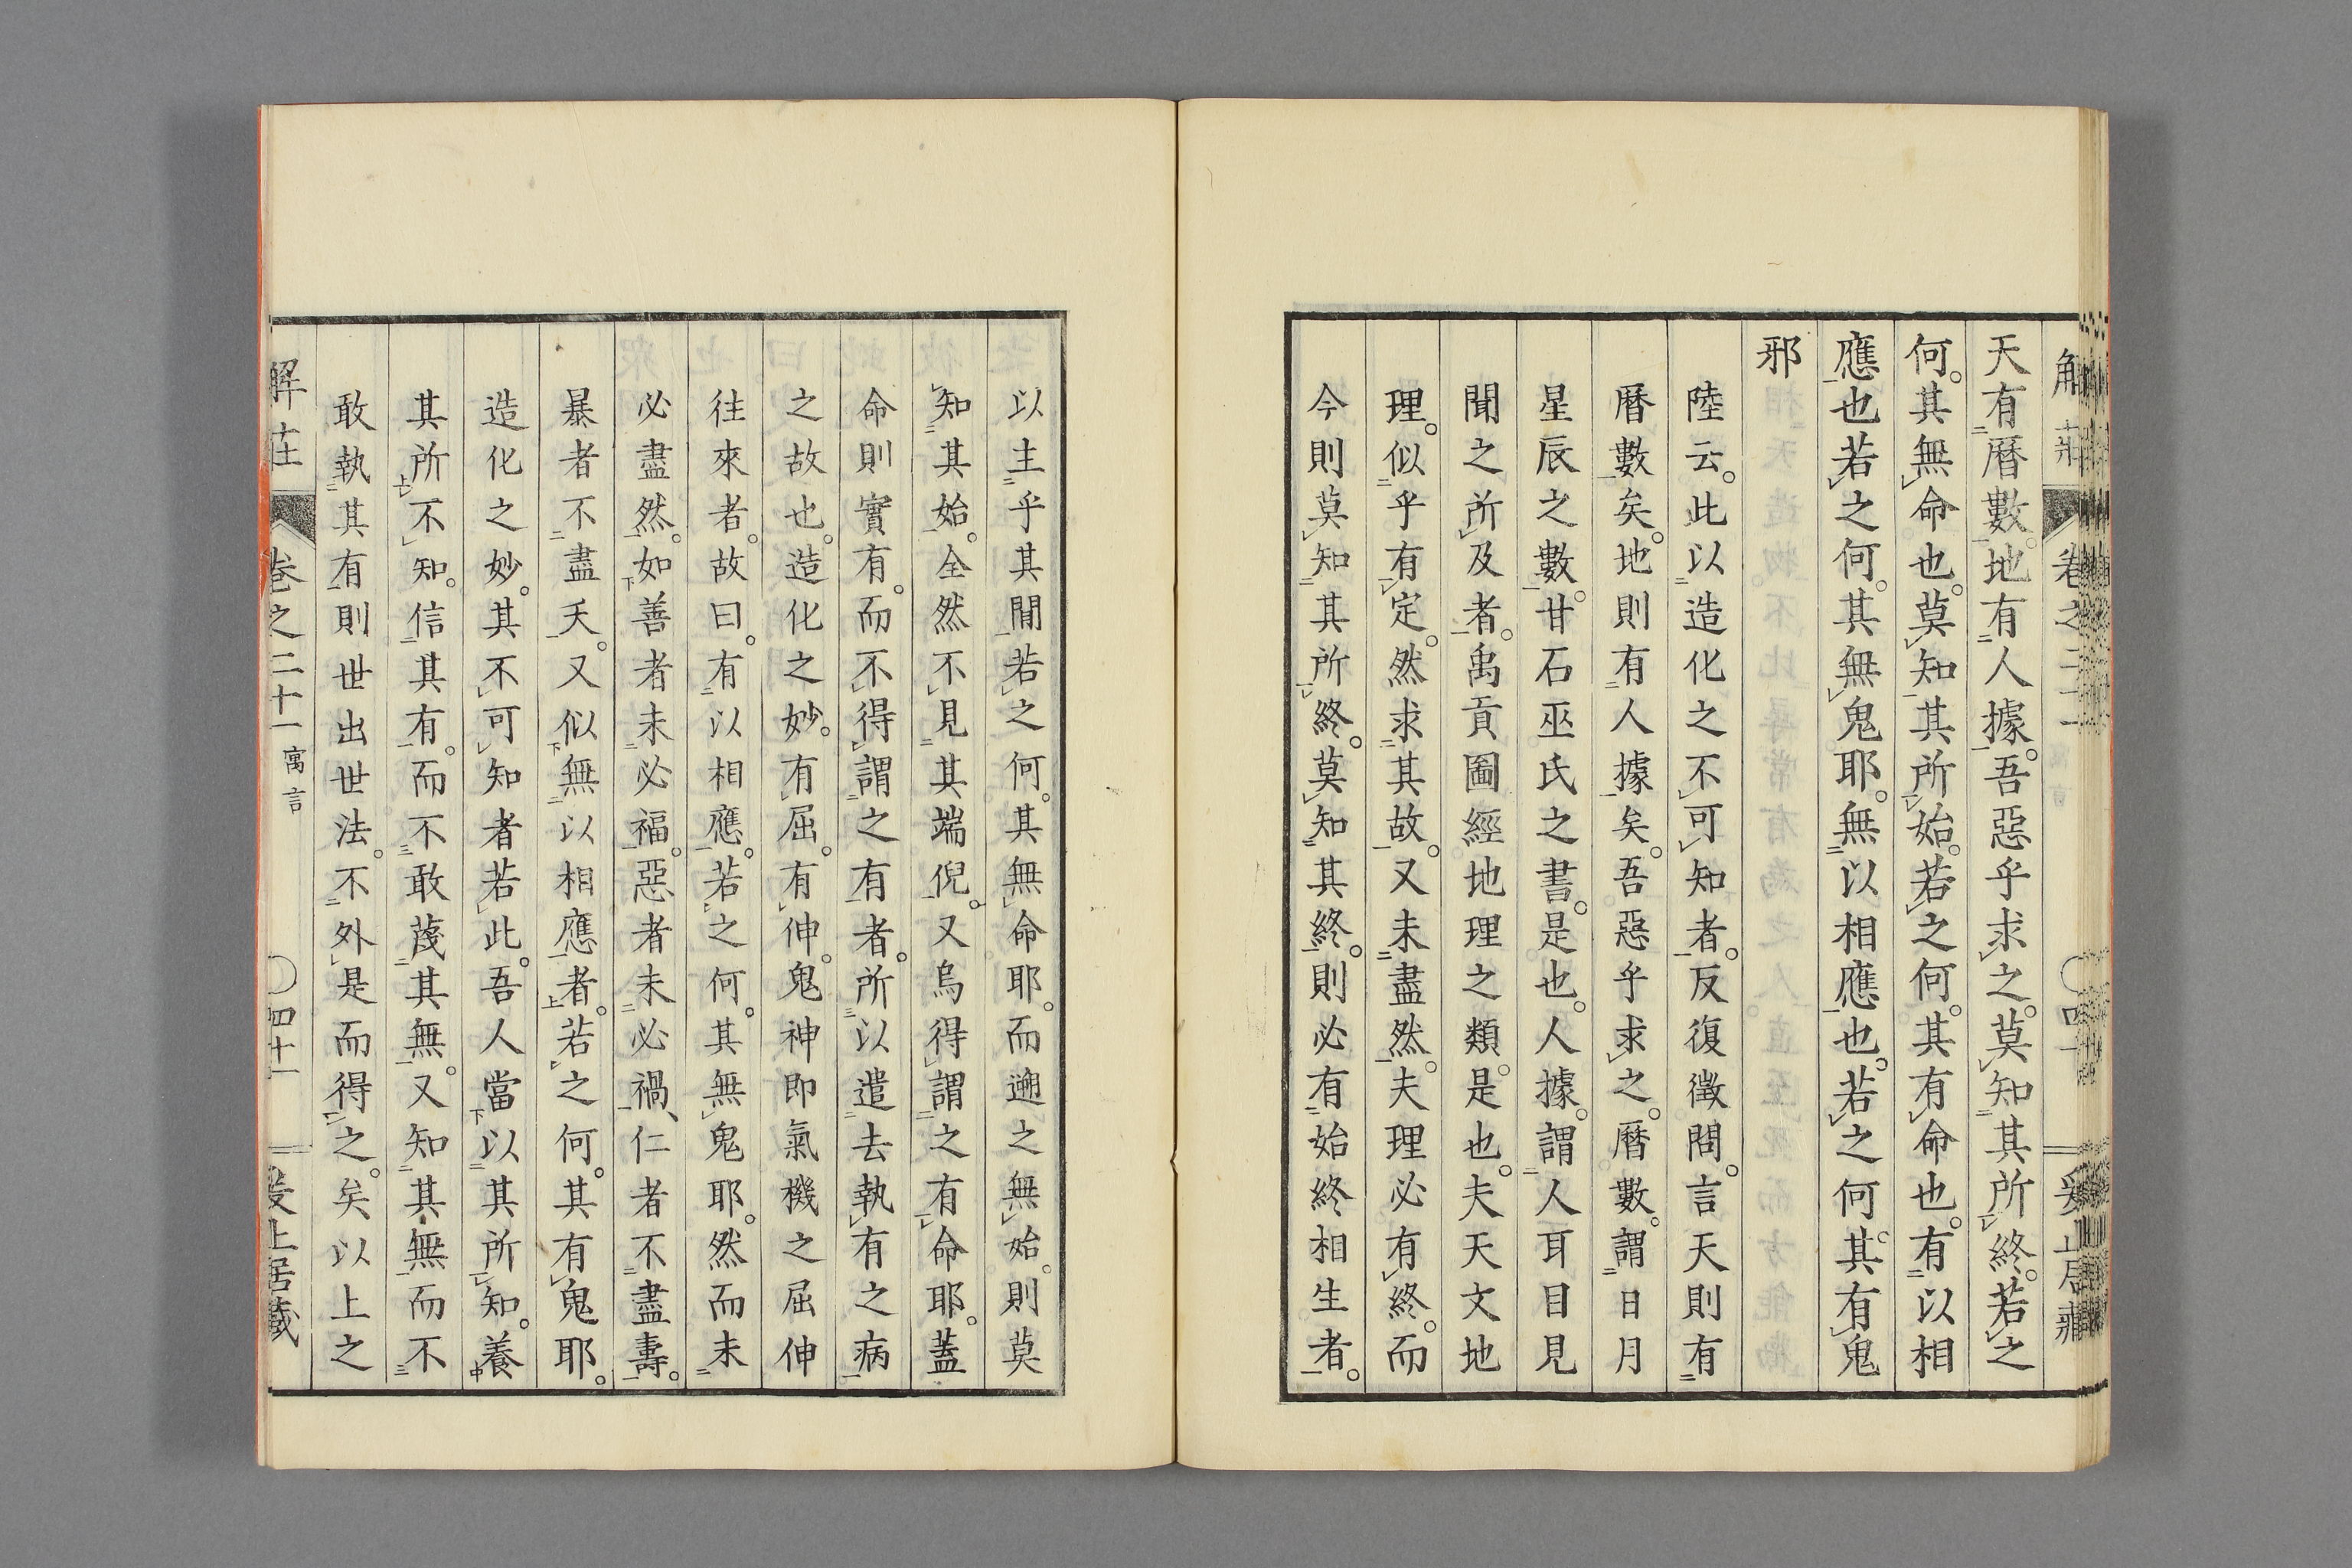 天有曆數。地有人據。吾惡乎求之。莫知其所終。若之
何。其無命也。莫知其所始。若之何。其有命也。有以相
應也若之何。其無鬼耶。無以相應也。若之何。其有鬼
邪
陸云。此以造化之不可知者。反復徵問。言天則有
曆數矣。地則有人據矣。吾惡乎求之。曆數。謂日月
星辰之數。甘石巫氏之書。是也。人據。謂人耳目見
聞之所及者。禹貢圖經地理之類。是也。夫天文地
理。似乎有定。然求其故。又未盡然。夫理必有終。而
今則莫知其所終。莫知其終。則必有始終相生者。
以主乎其間若之何。其無命耶。而遡之無始。則莫
知其始。全然不見其端倪。又烏得謂之有命耶。蓋
命則實有。而不得謂之有者。所以遣去執有之病
之故也。造化之妙。有屈。有伸。鬼神即氣機之屈伸
往來者。故曰。有以相應。若之何。其無鬼耶。然而未
必盡然。如善者未必福。惡者未必禍、仁者不盡壽。
暴者不盡夭。又似無以相應者。若之何。其有鬼耶。
造化之妙。其不可知者若此。吾人當以其所知。養
其所不知。信其有。而不敢蔑其無。又知其無而不
敢執其有則世出世法。不外是而得之。矣以上之
解莊 卷之二十一 寓言 〇四十一